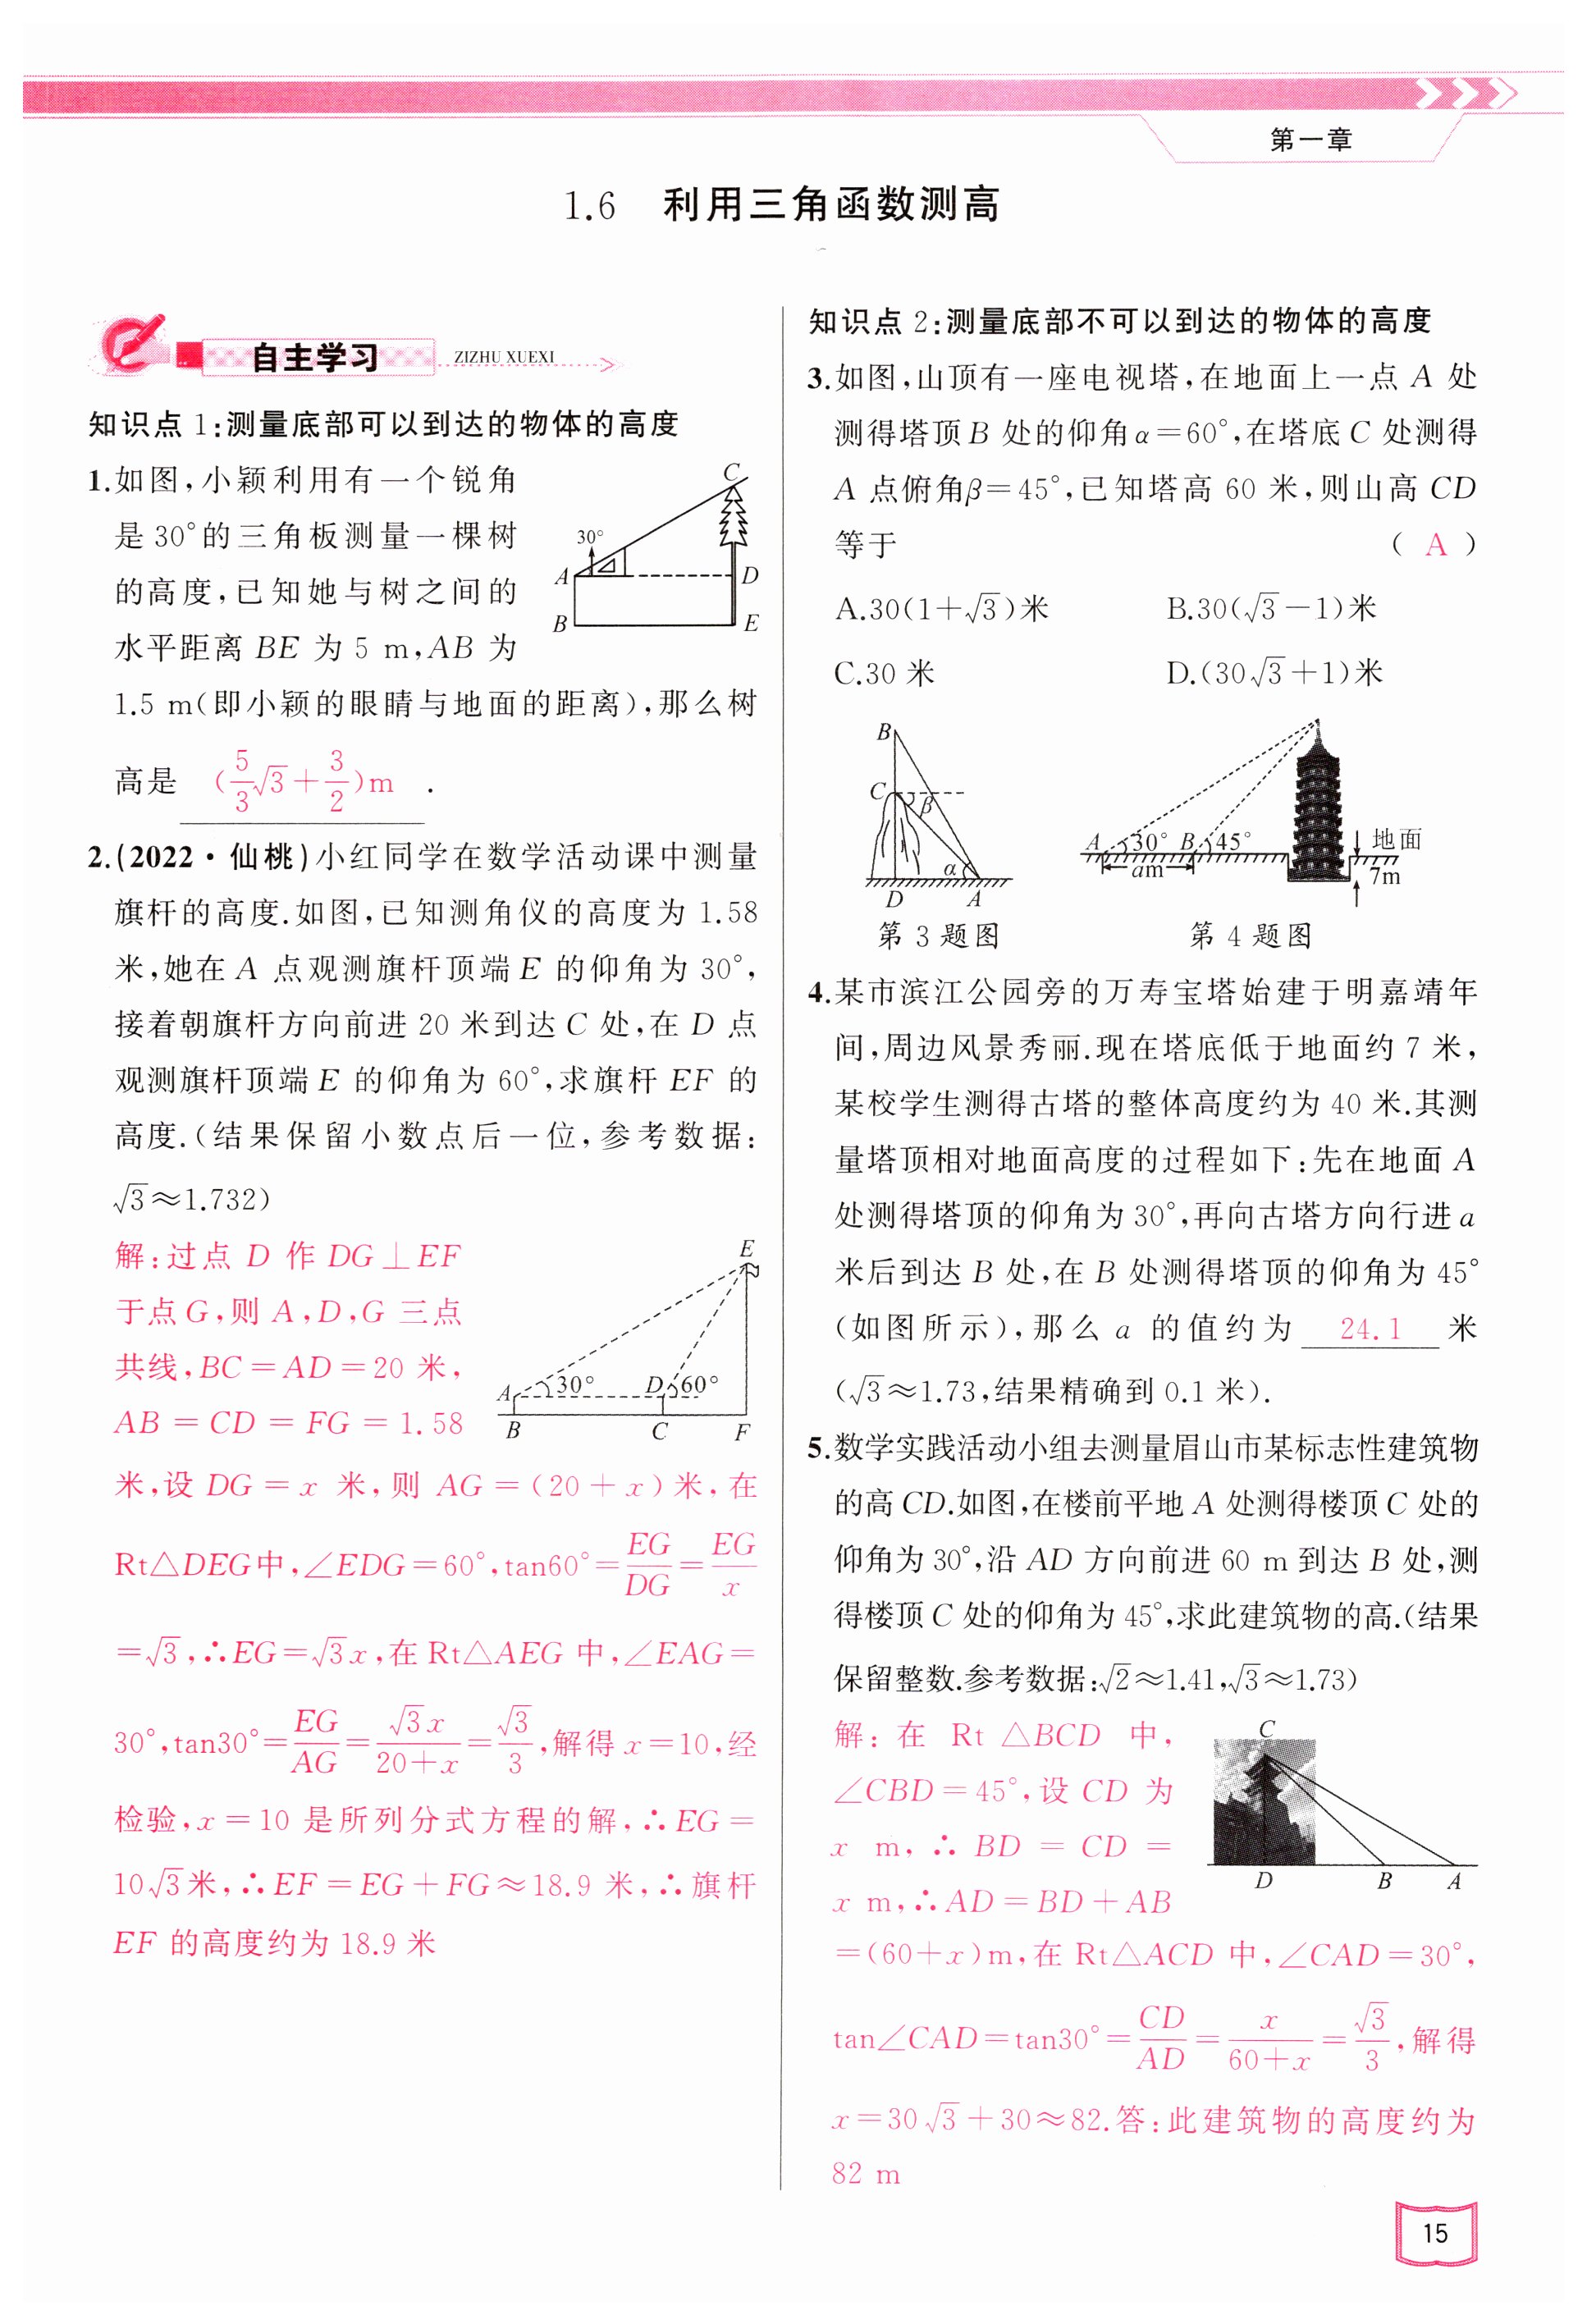 第一章
1.6 利用三角函数测高
自主学习 ZIZHU XUEXI
知识点 1:测量底部可以到达的物体的高度
1.如图,小颖利用有一个锐角
是 30°的三角板测量一棵树
的高度,已知她与树之间的
水平距离 BE 为 5 m,AB 为
1.5 m(即小颖的眼睛与地面的距离),那么树
高是 (5/3√3+3/2)m .
C
30°
A
D
B
E
2.(2022·仙桃)小红同学在数学活动课中测量
旗杆的高度.如图,已知测角仪的高度为 1.58
米,她在 A 点观测旗杆顶端 E 的仰角为 30°,
接着朝旗杆方向前进 20 米到达 C 处,在 D 点
观测旗杆顶端 E 的仰角为 60°,求旗杆 EF 的
高度.(结果保留小数点后一位,参考数据:
√3≈1.732)
解:过点 D 作 DG⊥EF
于点 G,则 A,D,G 三点
共线,BC=AD=20 米,
AB=CD=FG=1.58
米,设 DG=x 米,则 AG=(20+x)米,在
Rt△DEG中,∠EDG=60°,tan60°=EG/DG=EG/x
=√3,∴EG=√3x,在 Rt△AEG 中,∠EAG=
30°,tan30°=EG/AG=√3x/(20+x)=√3/3,解得 x=10,经
检验,x=10 是所列分式方程的解,∴EG=
10√3米,∴EF=EG+FG≈18.9 米,∴旗杆
EF 的高度约为 18.9 米
E
A 30° D 60°
B C F
知识点 2:测量底部不可以到达的物体的高度
3.如图,山顶有一座电视塔,在地面上一点 A 处
测得塔顶 B 处的仰角α=60°,在塔底 C 处测得
A 点俯角β=45°,已知塔高 60 米,则山高 CD
等于 ( A )
A.30(1+√3)米 B.30(√3-1)米
C.30 米 D.(30√3+1)米
B
C
β
α
D A
第 3 题图
A 30° B 45°
am
地面
7m
第 4 题图
4.某市滨江公园旁的万寿宝塔始建于明嘉靖年
间,周边风景秀丽.现在塔底低于地面约 7 米,
某校学生测得古塔的整体高度约为 40 米.其测
量塔顶相对地面高度的过程如下:先在地面 A
处测得塔顶的仰角为 30°,再向古塔方向行进 a
米后到达 B 处,在 B 处测得塔顶的仰角为 45°
(如图所示),那么 a 的值约为 24.1 米
(√3≈1.73,结果精确到 0.1 米).
5.数学实践活动小组去测量眉山市某标志性建筑物
的高 CD.如图,在楼前平地 A 处测得楼顶 C 处的
仰角为 30°,沿 AD 方向前进 60 m 到达 B 处,测
得楼顶 C 处的仰角为 45°,求此建筑物的高.(结果
保留整数.参考数据:√2≈1.41,√3≈1.73)
解:在 Rt△BCD 中,
∠CBD=45°,设 CD 为
x m,∴BD=CD=
x m,∴AD=BD+AB
=(60+x)m,在 Rt△ACD 中,∠CAD=30°,
tan∠CAD=tan30°=CD/AD=x/(60+x)=√3/3,解得
x=30√3+30≈82.答:此建筑物的高度约为
82 m
C
D B A
15